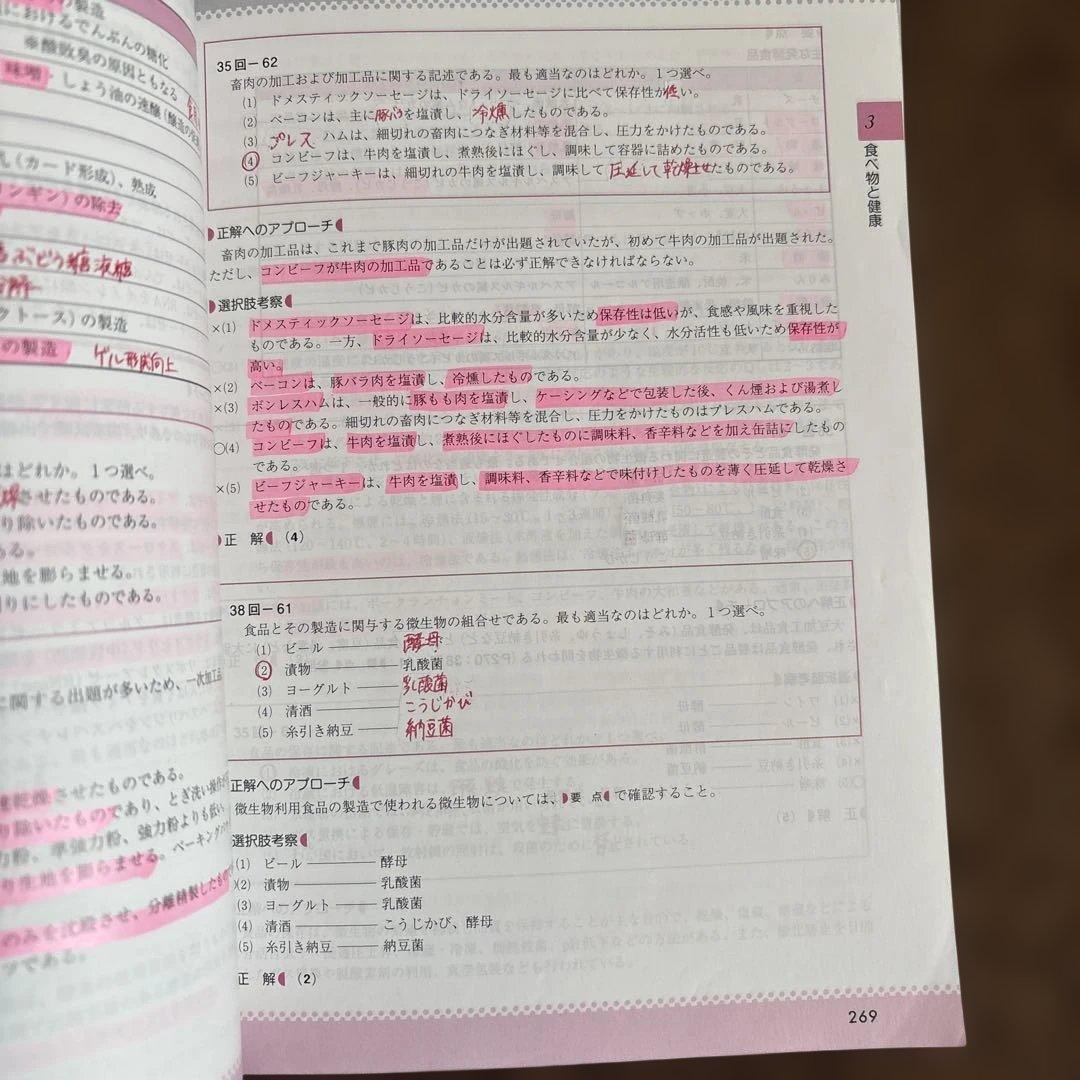 の製造
におけるでんぷんの糖化
※酸敗臭の原因ともなる
味噌・しょう油の速醸
乳(カード形成)、熟成
リンギン)の除去
ぶどう糖液糖
クトース)の製造
の製造 ゲル形成向上
はどれか。1つ選べ。
燥させたものである。
り除いたものである。
ある。
地を膨らませる。
切りにしたものである。
に関する出題が多いため、一次加工品
乾燥させたものである。
り除いたものであり、とぎ洗い操作が
力粉、準強力粉、強力粉よりも低い
り生地を膨らませる。ベーキングパウ
のみを沈殿させ、分離精製したもので
ツである。
35回-62
畜肉の加工および加工品に関する記述である。最も適当なのはどれか。1つ選べ。
(1) ドメスティックソーセージは、ドライソーセージに比べて保存性が低い。
(2) ベーコンは、主に豚バラを塩漬し、冷燻したものである。
(3) プレスハムは、細切れの畜肉につなぎ材料等を混合し、圧力をかけたものである。
(4) コンビーフは、牛肉を塩漬し、煮熟後にほぐし、調味して容器に詰めたものである。
(5) ビーフジャーキーは、細切れの牛肉を塩漬し、調味して圧延して乾燥させたものである。
正解へのアプローチ
畜肉の加工品は、これまで豚肉の加工品だけが出題されていたが、初めて牛肉の加工品が出題された。
ただし、コンビーフが牛肉の加工品であることは必ず正解できなければならない。
選択肢考察
×(1) ドメスティックソーセージは、比較的水分含量が多いため保存性は低いが、食感や風味を重視した
ものである。一方、ドライソーセージは、比較的水分含量が少なく、水分活性も低いため保存性が
高い。
×(2) ベーコンは、豚バラ肉を塩漬し、冷燻したものである。
×(3) ボンレスハムは、一般的に豚もも肉を塩漬し、ケーシングなどで包装した後、くん煙および湯煮し
たものである。細切れの畜肉につなぎ材料等を混合し、圧力をかけたものはプレスハムである。
○(4) コンビーフは、牛肉を塩漬し、煮熟後にほぐしたものに調味料、香辛料などを加え缶詰にしたもの
である。
×(5) ビーフジャーキーは、牛肉を塩漬し、調味料、香辛料などで味付けしたものを薄く圧延して乾燥さ
せたものである。
正解 (4)
38回-61
食品とその製造に関与する微生物の組合せである。最も適当なのはどれか。1つ選べ。
(1) ビール ―― 酵母
(2) 漬物 ―― 乳酸菌
(3) ヨーグルト ―― 乳酸菌
(4) 清酒 ―― こうじかび
(5) 糸引き納豆 ―― 納豆菌
正解へのアプローチ
微生物利用食品の製造で使われる微生物については、要点で確認すること。
選択肢考察
(1) ビール ―― 酵母
(2) 漬物 ―― 乳酸菌
(3) ヨーグルト ―― 乳酸菌
(4) 清酒 ―― こうじかび、酵母
(5) 糸引き納豆 ―― 納豆菌
正解 (2)
3
食べ物と健康
269